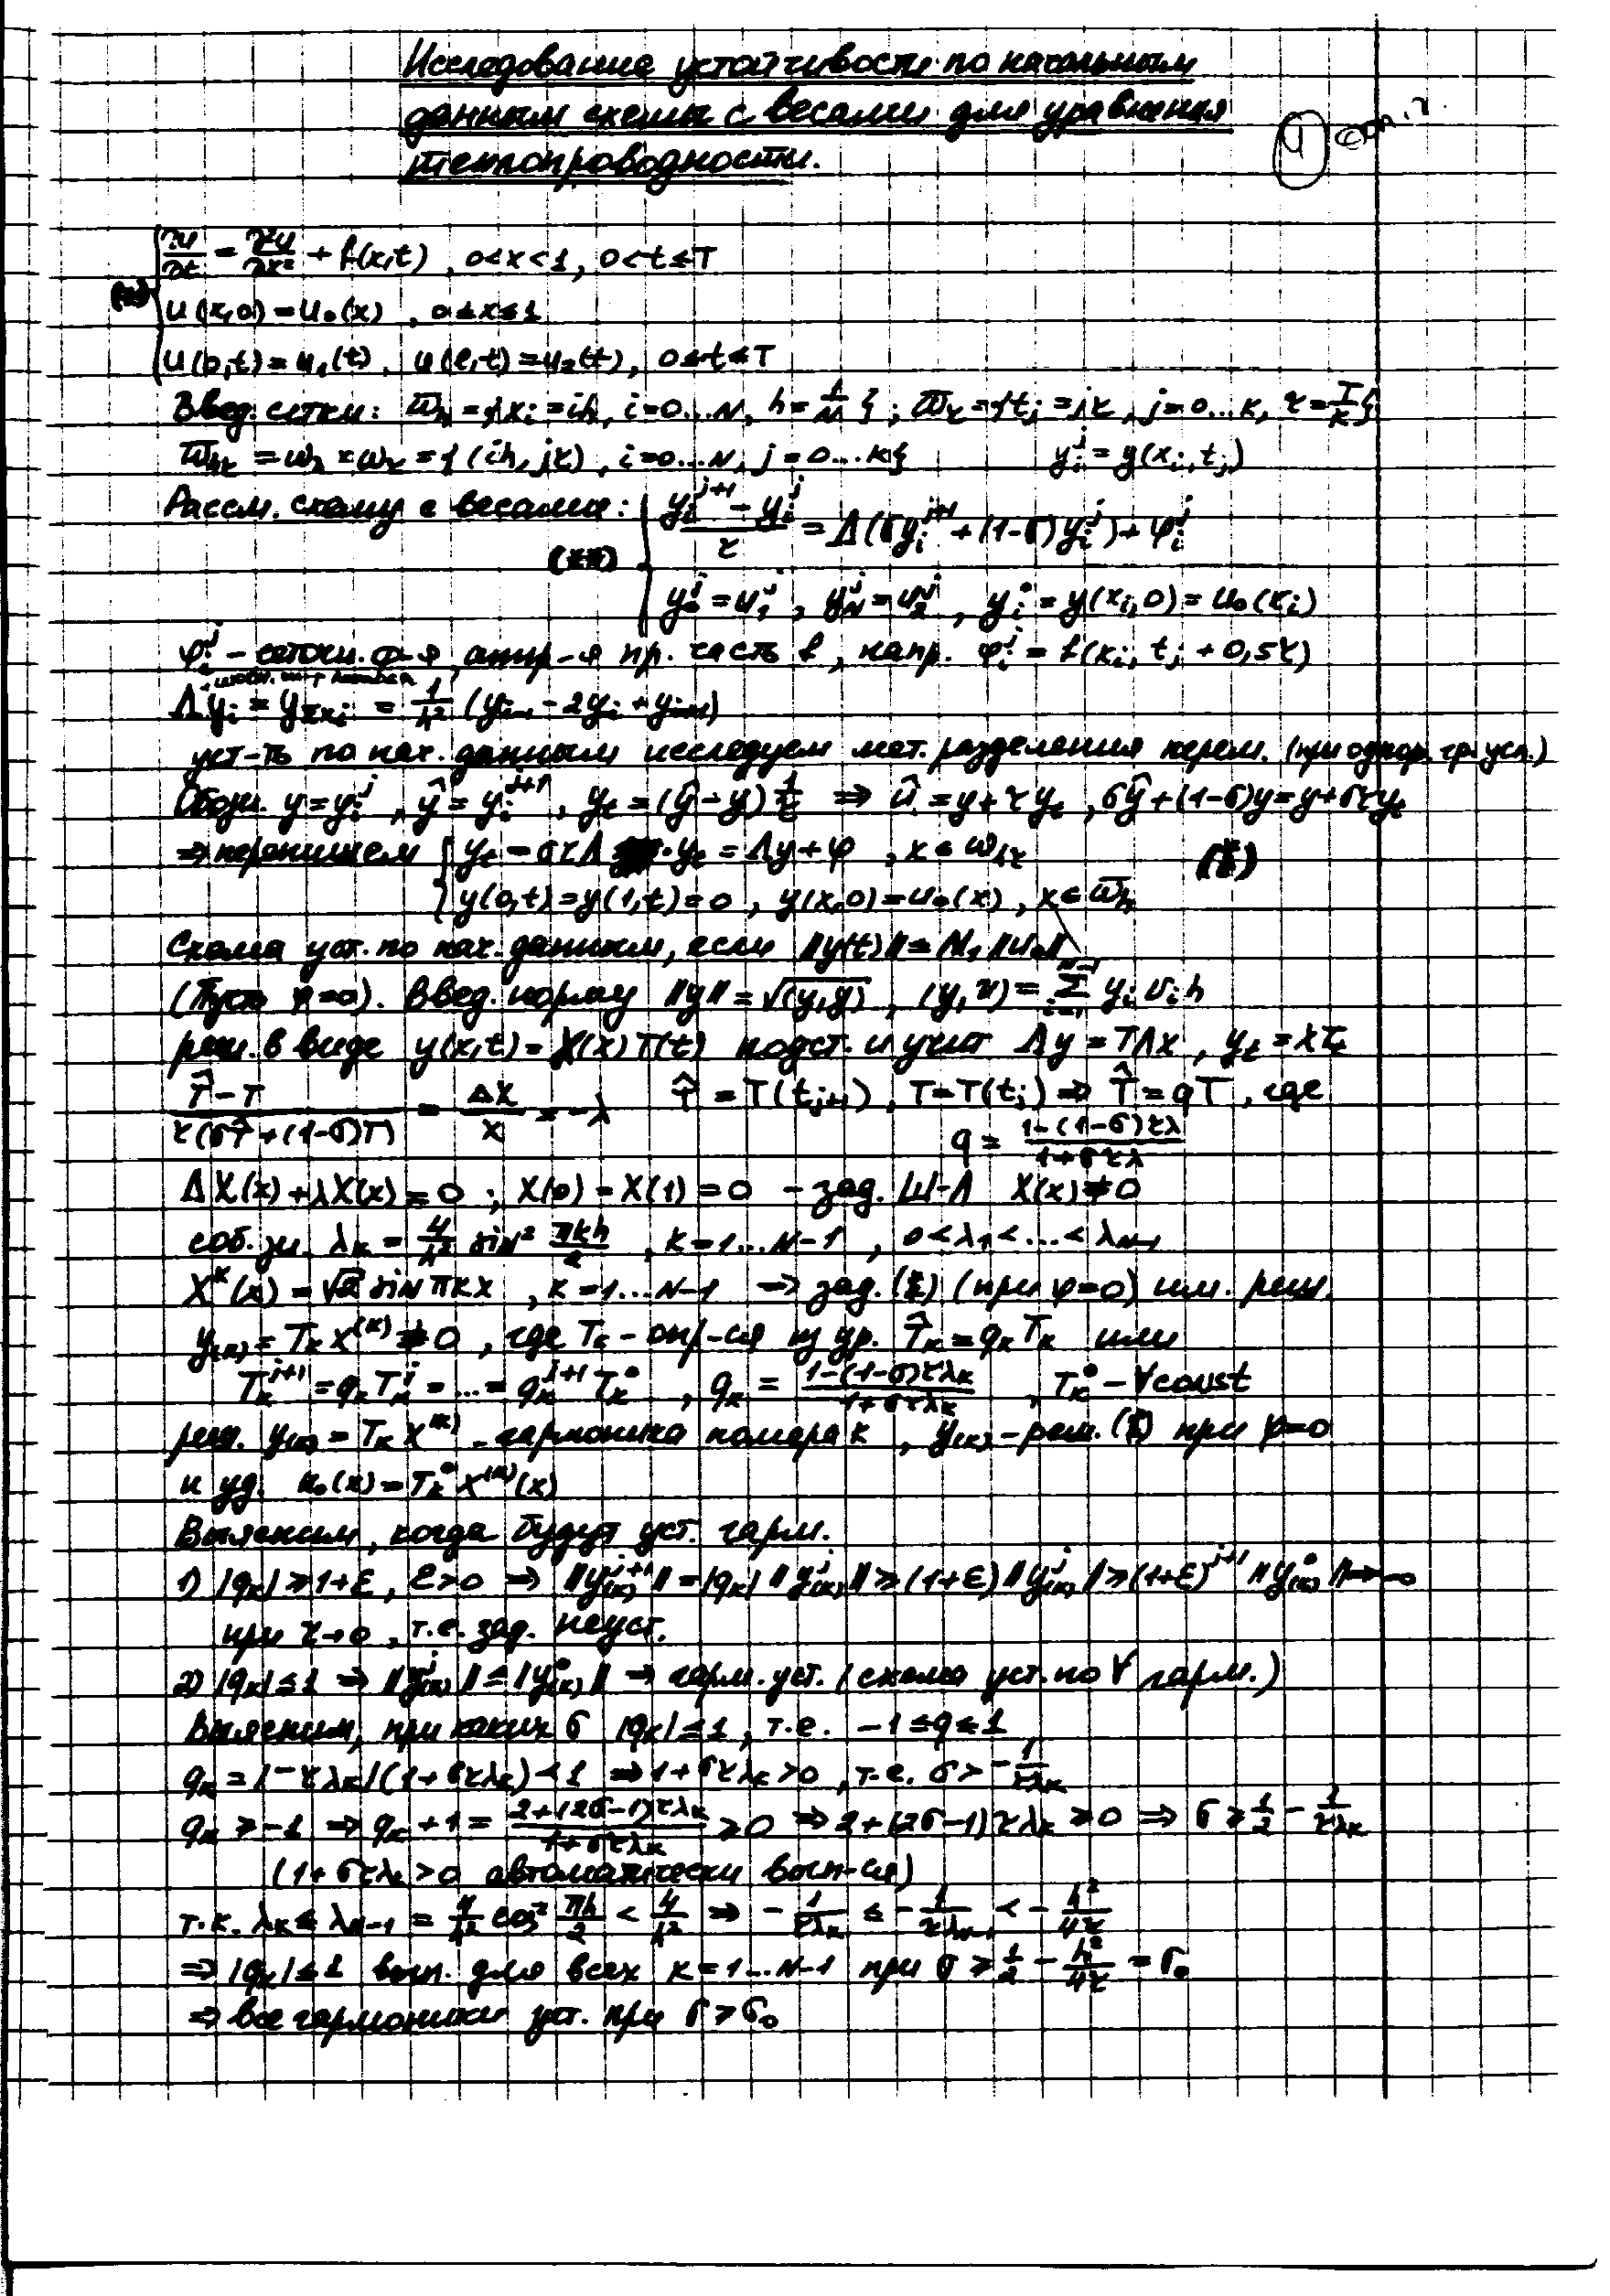 Исследование устойчивости по начальным
данным схемы с весами для уравнения
теплопроводности.
4 стр. 1
(*) { ∂u/∂t = ∂²u/∂x² + f(x,t) , 0<x<1, 0<t≤T
u(x,0)=u₀(x) , 0≤x≤1
u(0,t)=u₁(t), u(l,t)=u₂(t), 0≤t≤T
Введ. сетки: ω̄_h={x_i=ih, i=0...N, h=1/N}; ω̄_τ={t_j=jτ, j=0...K, τ=T/K}
ω̄_hτ = ω_h × ω_τ = {(ih, jτ), i=0...N, j=0...K} y_i^j = y(x_i, t_j)
Рассм. схему с весами: { (y_i^{j+1} - y_i^j)/τ = Λ(σy_i^{j+1} + (1-σ)y_i^j) + φ_i^j
(**)
y_0^j = u_1^j, y_N^j = u_2^j, y_i^0 = y(x_i,0) = u₀(x_i)
φ_i^j - сеточн. ф-я, аппр-я пр. часть f, напр. φ_i^j = f(x_i, t_j + 0,5τ)
Λy_i = y_{x̄x,i} = 1/h² (y_{i-1} - 2y_i + y_{i+1})
уст-ть по нач. данным исследуем мет. разделения перем. (при однор. гр. усл.)
Обозн. y=y_i^j, ŷ=y_i^{j+1}, y_t=(ŷ-y)1/τ ⇒ û=y+τy_t, σŷ+(1-σ)y=y+στy_t
⇒ перепишем { y_t - στΛ y_t = Λy+φ , x∈ω_hτ
y(0,t)=y(1,t)=0 , y(x,0)=u₀(x) , x∈ω̄_h
Схема уст. по нач. данным, если ‖y(t)‖ ≤ M₁‖u₀‖
(Пусть φ=0). Введ. норму ‖y‖=√(y,y) , (y,v)=∑_{i=1}^{N-1} y_i v_i h
реш. в виде y(x,t)=X(x)T(t) подст. и учит Λy=TΛX, y_t=XT_t
(T̂-T)/(τ(σT̂+(1-σ)T)) = ΛX/X = -λ T̂=T(t_{j+1}), T=T(t_j) ⇒ T̂=qT, где
q = (1-(1-σ)τλ)/(1+στλ)
ΛX(x)+λX(x)=0 ; X(0)=X(1)=0 - зад. Ш-Л X(x)≠0
соб. зн. λ_k = 4/h² sin² πkh/2 , k=1...N-1 , 0<λ₁<...<λ_{N-1}
X^k(x)=√2 sin πkx , k=1...N-1 ⇒ зад. (при φ=0) им. реш.
y_(k)=T_k X^(k)≠0, где T_k - опр-ся из ур. T̂_k=q_k T_k или
T_k^{j+1}=q_k T_k^j=...=q_k^{j+1} T_k^0 , q_k = (1-(1-σ)τλ_k)/(1+στλ_k) , T_k^0 - ∀const
реш. y_(k)=T_k X^(k) - гармоника номера k , y_(k) - реш. при φ=0
и уд. u₀(x)=T_k^0 X^(k)(x)
Выясним, когда будут уст. гарм.
1) |q_k| ≥ 1+ε, ε>0 ⇒ ‖y_(k)^{j+1}‖=|q_k| ‖y_(k)^j‖ ≥ (1+ε)‖y_(k)^j‖ ≥ (1+ε)^{j+1} ‖y_(k)^0‖ → ∞
при τ→0, т.е. зад. неуст.
2) |q_k| ≤ 1 ⇒ ‖y_(k)^j‖ ≤ ‖y_(k)^0‖ ⇒ гарм. уст. (схема уст. по ∀ гарм.)
Выясним, при каких σ |q_k| ≤ 1, т.е. -1≤q≤1
q_k = 1-τλ_k/(1+στλ_k) < 1 ⇒ 1+στλ_k>0, т.е. σ > -1/τλ_k
q_k ≥ -1 ⇒ q_k+1 = (2+(2σ-1)τλ_k)/(1+στλ_k) ≥ 0 ⇒ 2+(2σ-1)τλ_k ≥ 0 ⇒ σ ≥ 1/2 - 1/τλ_k
(1+στλ_k>0 автоматически вып-ся)
т.к. λ_k ≤ λ_{N-1} = 4/h² cos² πh/2 < 4/h² ⇒ -1/τλ_k ≤ -1/τλ_{N-1} < -h²/4τ
⇒ |q_k| ≤ 1 вып. для всех k=1...N-1 при σ ≥ 1/2 - h²/4τ = σ₀
⇒ все гармоники уст. при σ ≥ σ₀